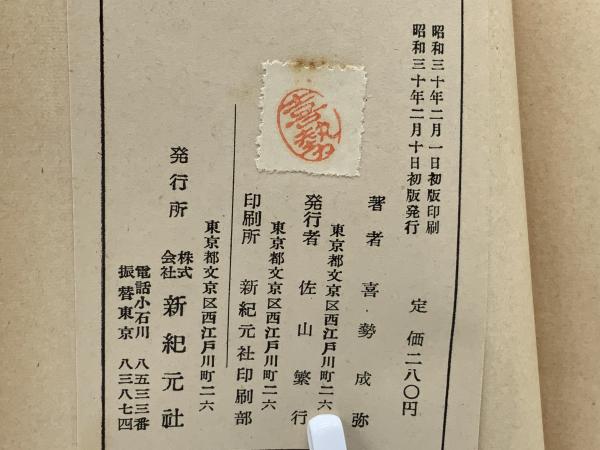 昭和三十年二月一日初版印刷
昭和三十年二月十日初版発行
定価二八〇円
著者 喜勢成弥
東京都文京区西江戸川町二六
発行者 佐山繁行
東京都文京区西江戸川町二六
印刷所 新紀元社印刷部
東京都文京区西江戸川町二六
発行所 株式会社 新紀元社
電話小石川 八五三三番
振替東京 八三八七四
喜勢